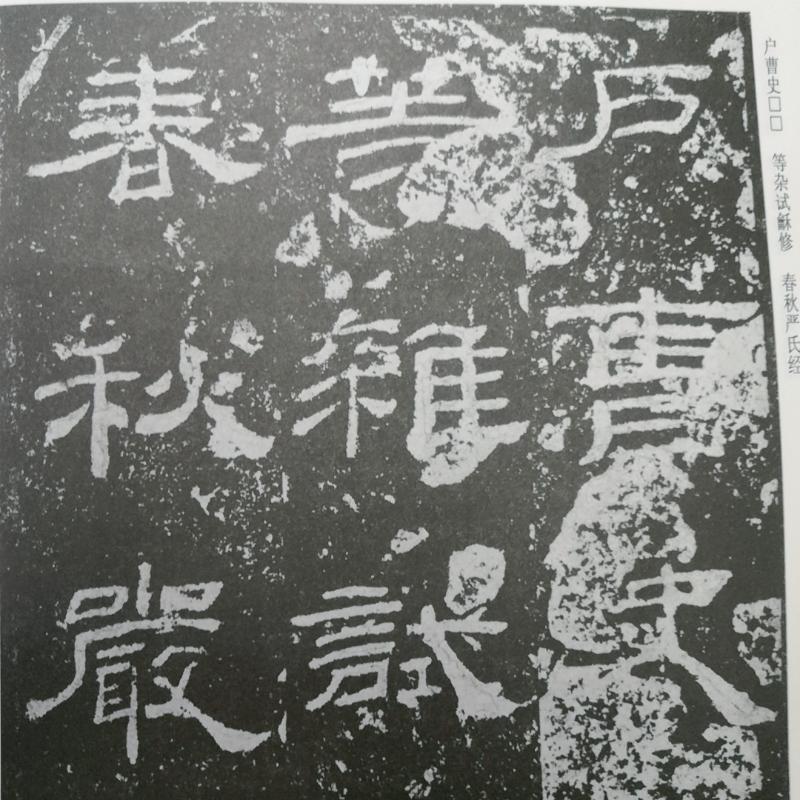 户曹史□□ 等杂试龢修 春秋严氏经
户曹史
等雜試
春秋嚴